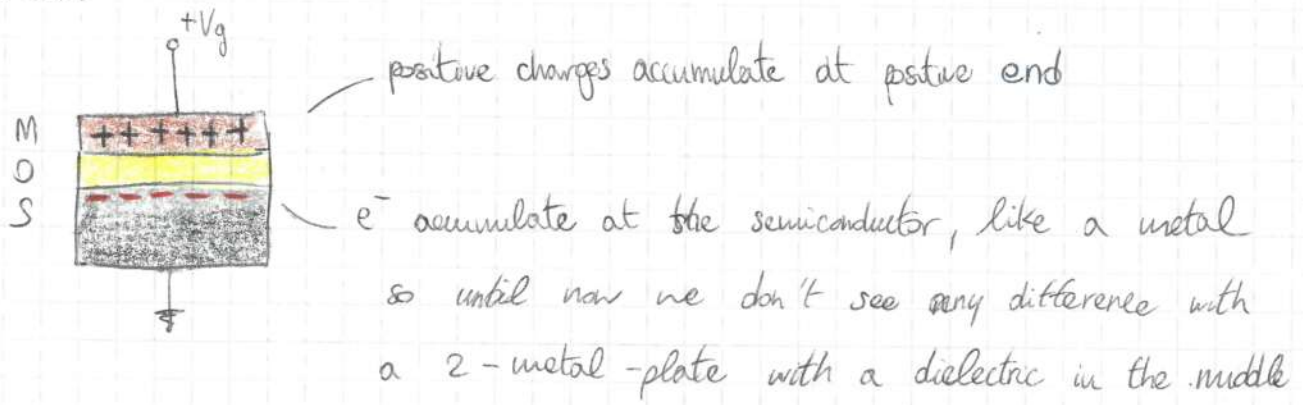 +Vg
positive charges accumulate at postive end
M
+ + + + + +
O
S
- - - - -
e⁻ accumulate at the semiconductor, like a metal
so until now we don't see any difference with
a 2-metal-plate with a dielectric in the middle